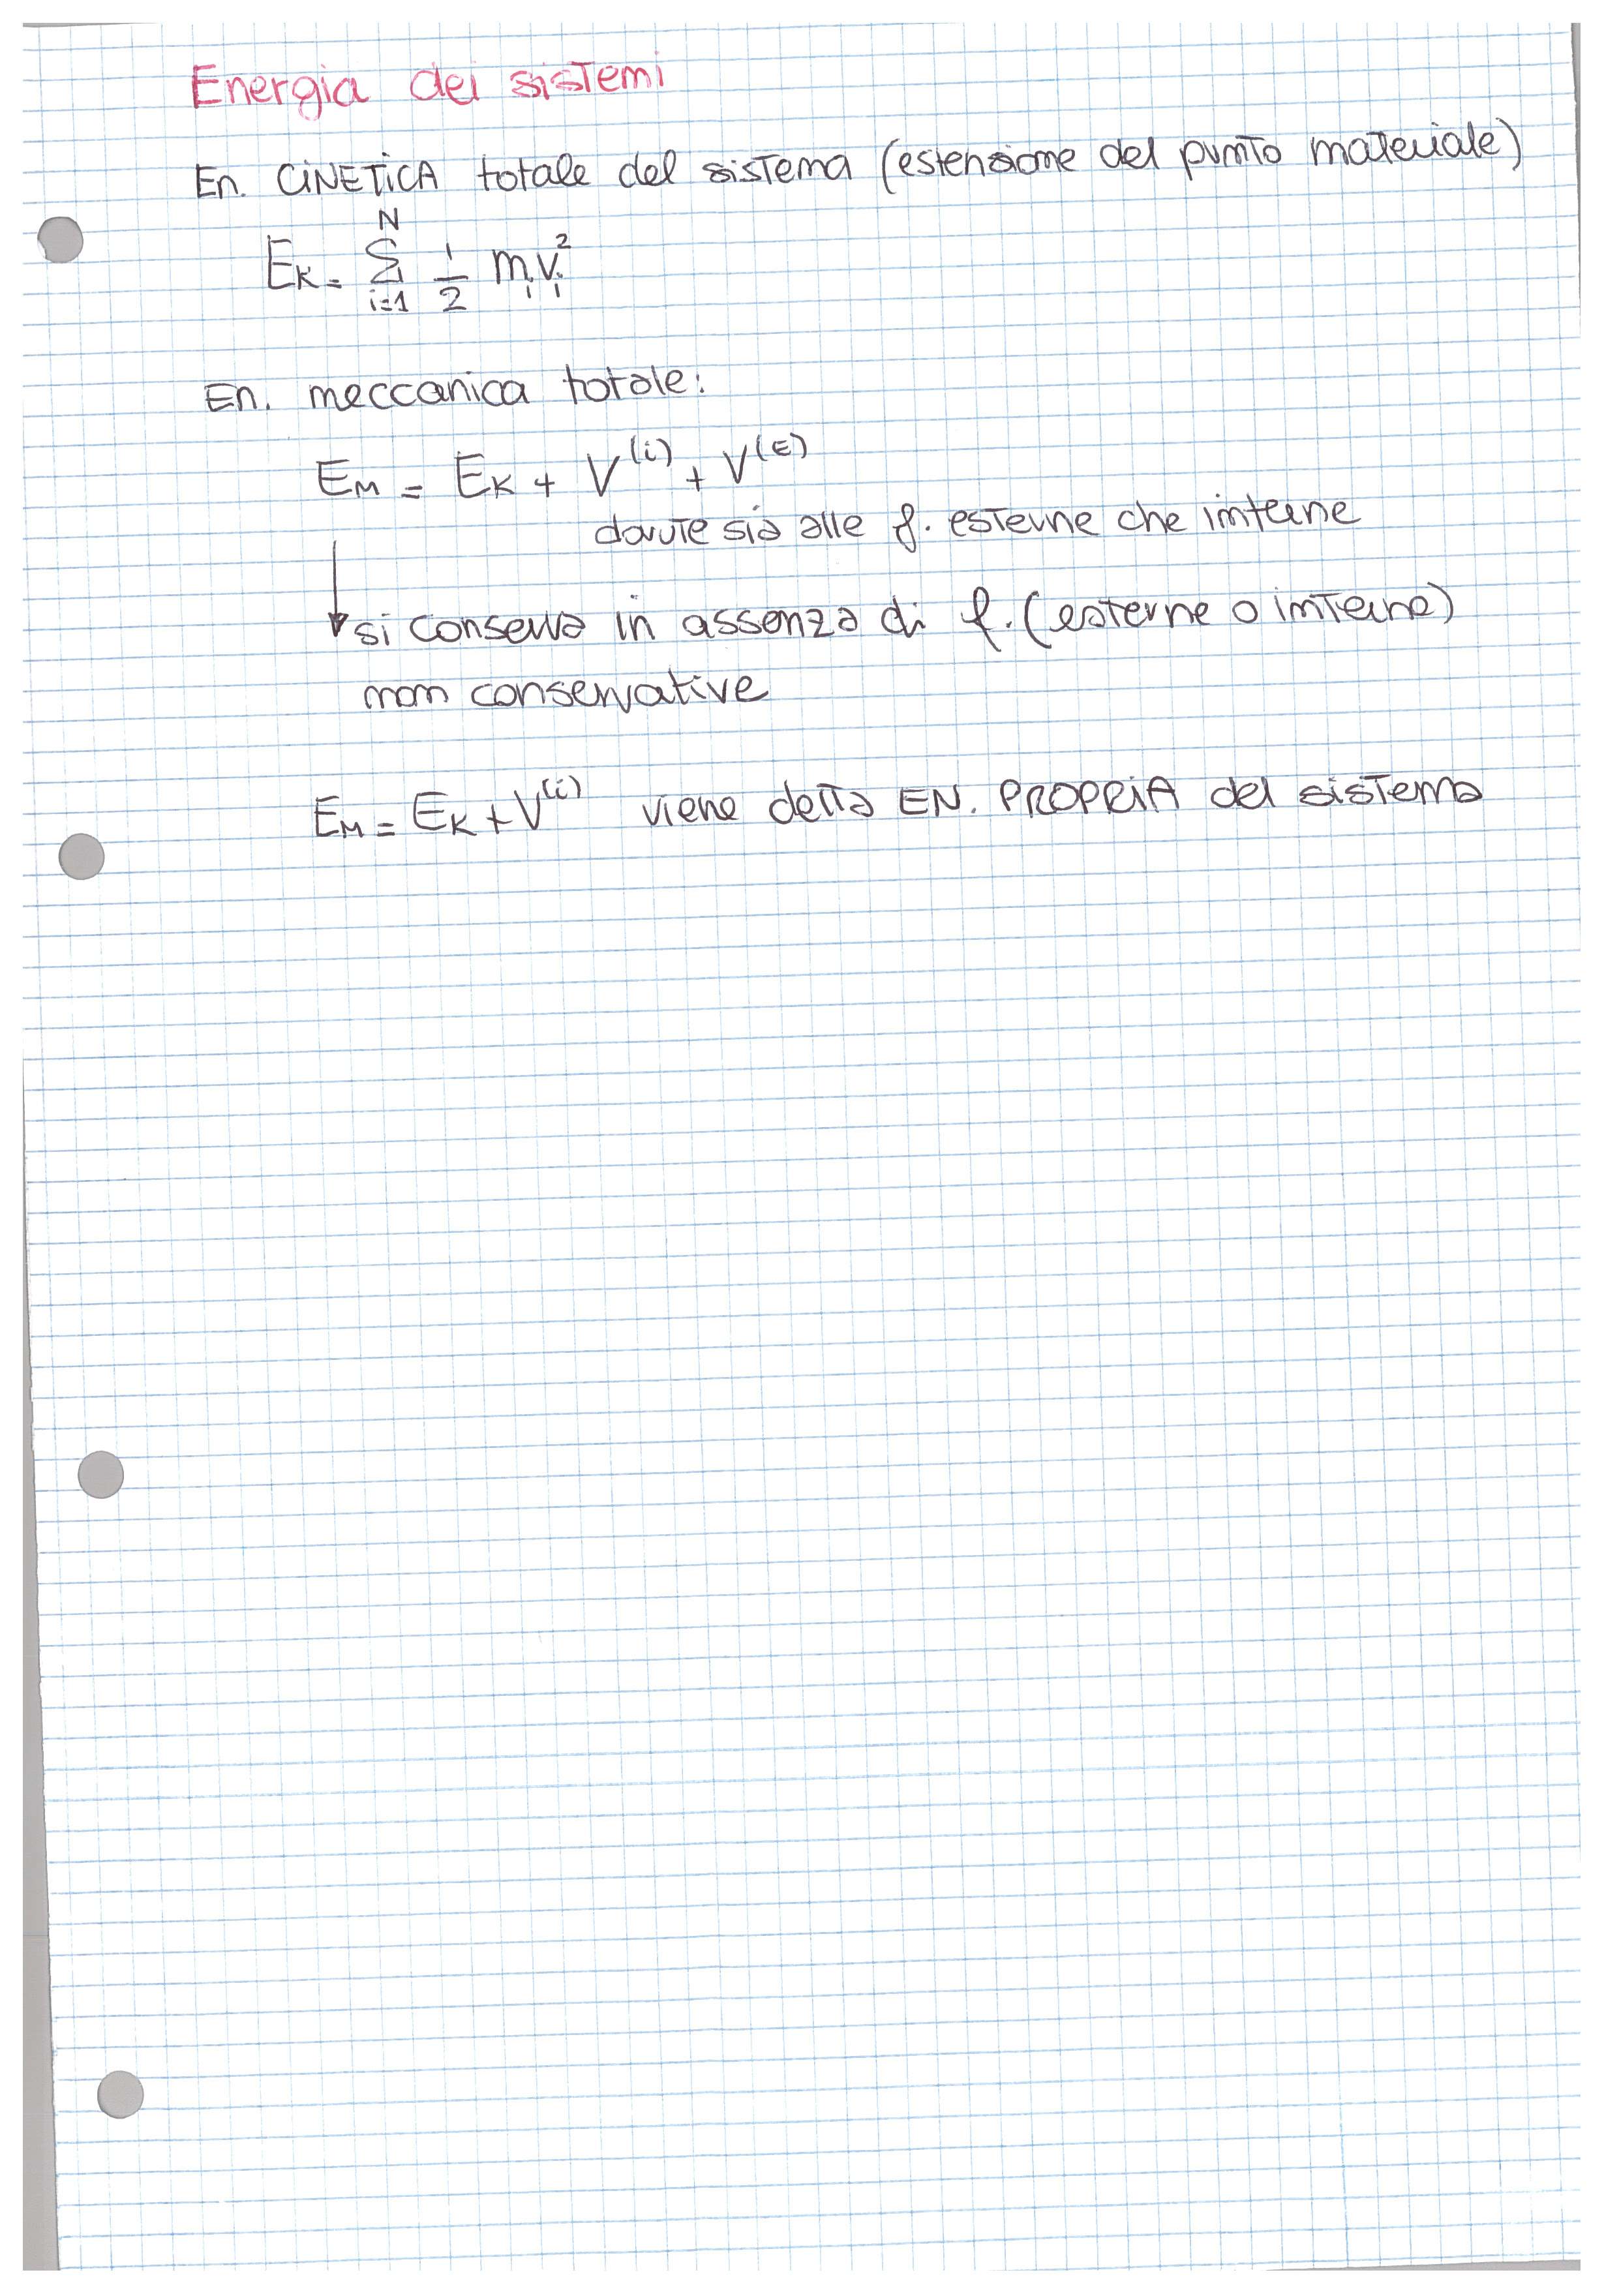 Energia dei sistemi
En. CINETICA totale del sistema (estensione del punto materiale)
E_K = \sum_{i=1}^{N} \frac{1}{2} m_i v_i^2
En. meccanica totale:
E_M = E_K + V^{(i)} + V^{(E)}
dovute sia alle f. esterne che interne
↓ si conserva in assenza di f. (esterne o interne)
non conservative
E_M = E_K + V^{(i)} viene detta EN. PROPRIA del sistema